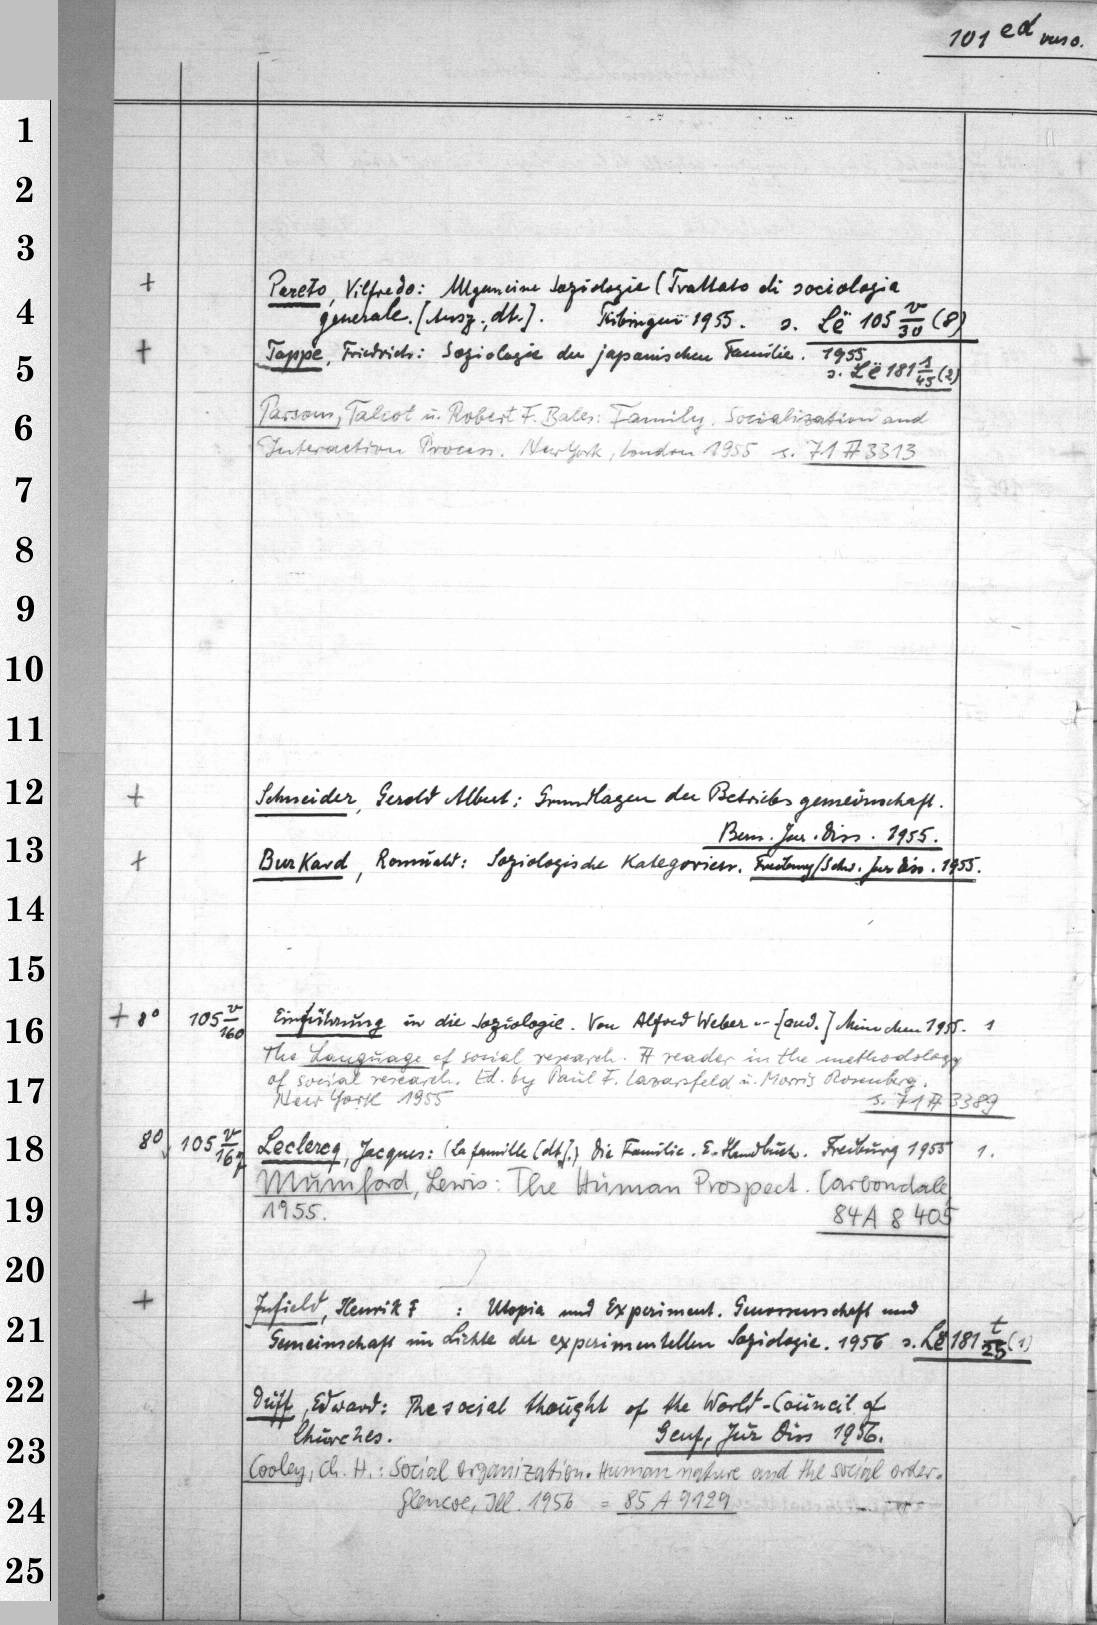 101 ed verso.
1
2
3
+ Pareto, Vilfredo: Allgemeine Soziologie (Trattato di sociologia
4 generale. [Ausz., dt.]. Tübingen 1955. s. Lë 105 v/30 (8)
+ Tappe, Friedrich: Soziologie der japanischen Familie. 1955
5 s. Lë 181 s/45 (2)
Parsons, Talcot u. Robert F. Bales: Family. Socialization and
6
Interaction Process. New York, London 1955 s. 71 A 3313
7
8
9
10
11
12 + Schneider, Gerold Albert: Grundlagen der Betriebsgemeinschaft.
Bern. Jur. Diss. 1955.
13 + Burkard, Romuald: Soziologische Kategorien. Freiburg/Schw. Jur Diss. 1955.
14
15
16 + 8° 105 v/160 Einführung in die Soziologie. Von Alfred Weber -- [and.] München 1955. 1
The Language of social research. A reader in the methodology
17 of social research. Ed. by Paul F. Lazarsfeld u. Morris Rosenberg.
New York 1955 s. 71 A 3389
18 8° 105 v/167 Leclercq, Jacques: (La famille [dt].) Die Familie. E. Handbuch. Freiburg 1955 1.
Mumford, Lewis: The Human Prospect. Carbondale
19 1955. 84 A 8 405
20
+ Infield, Henrik F : Utopia und Experiment. Genossenschaft und
21 Gemeinschaft im Lichte der experimentellen Soziologie. 1956 s. Lë 181 t/25 (1)
22 Duff, Edward: The social thought of the World-Council of
Churches. Genf, Jur Diss 1956.
23 Cooley, Ch. H.: Social organization. Human nature and the social order.
24 Glencoe, Ill. 1956 = 85 A 9129
25